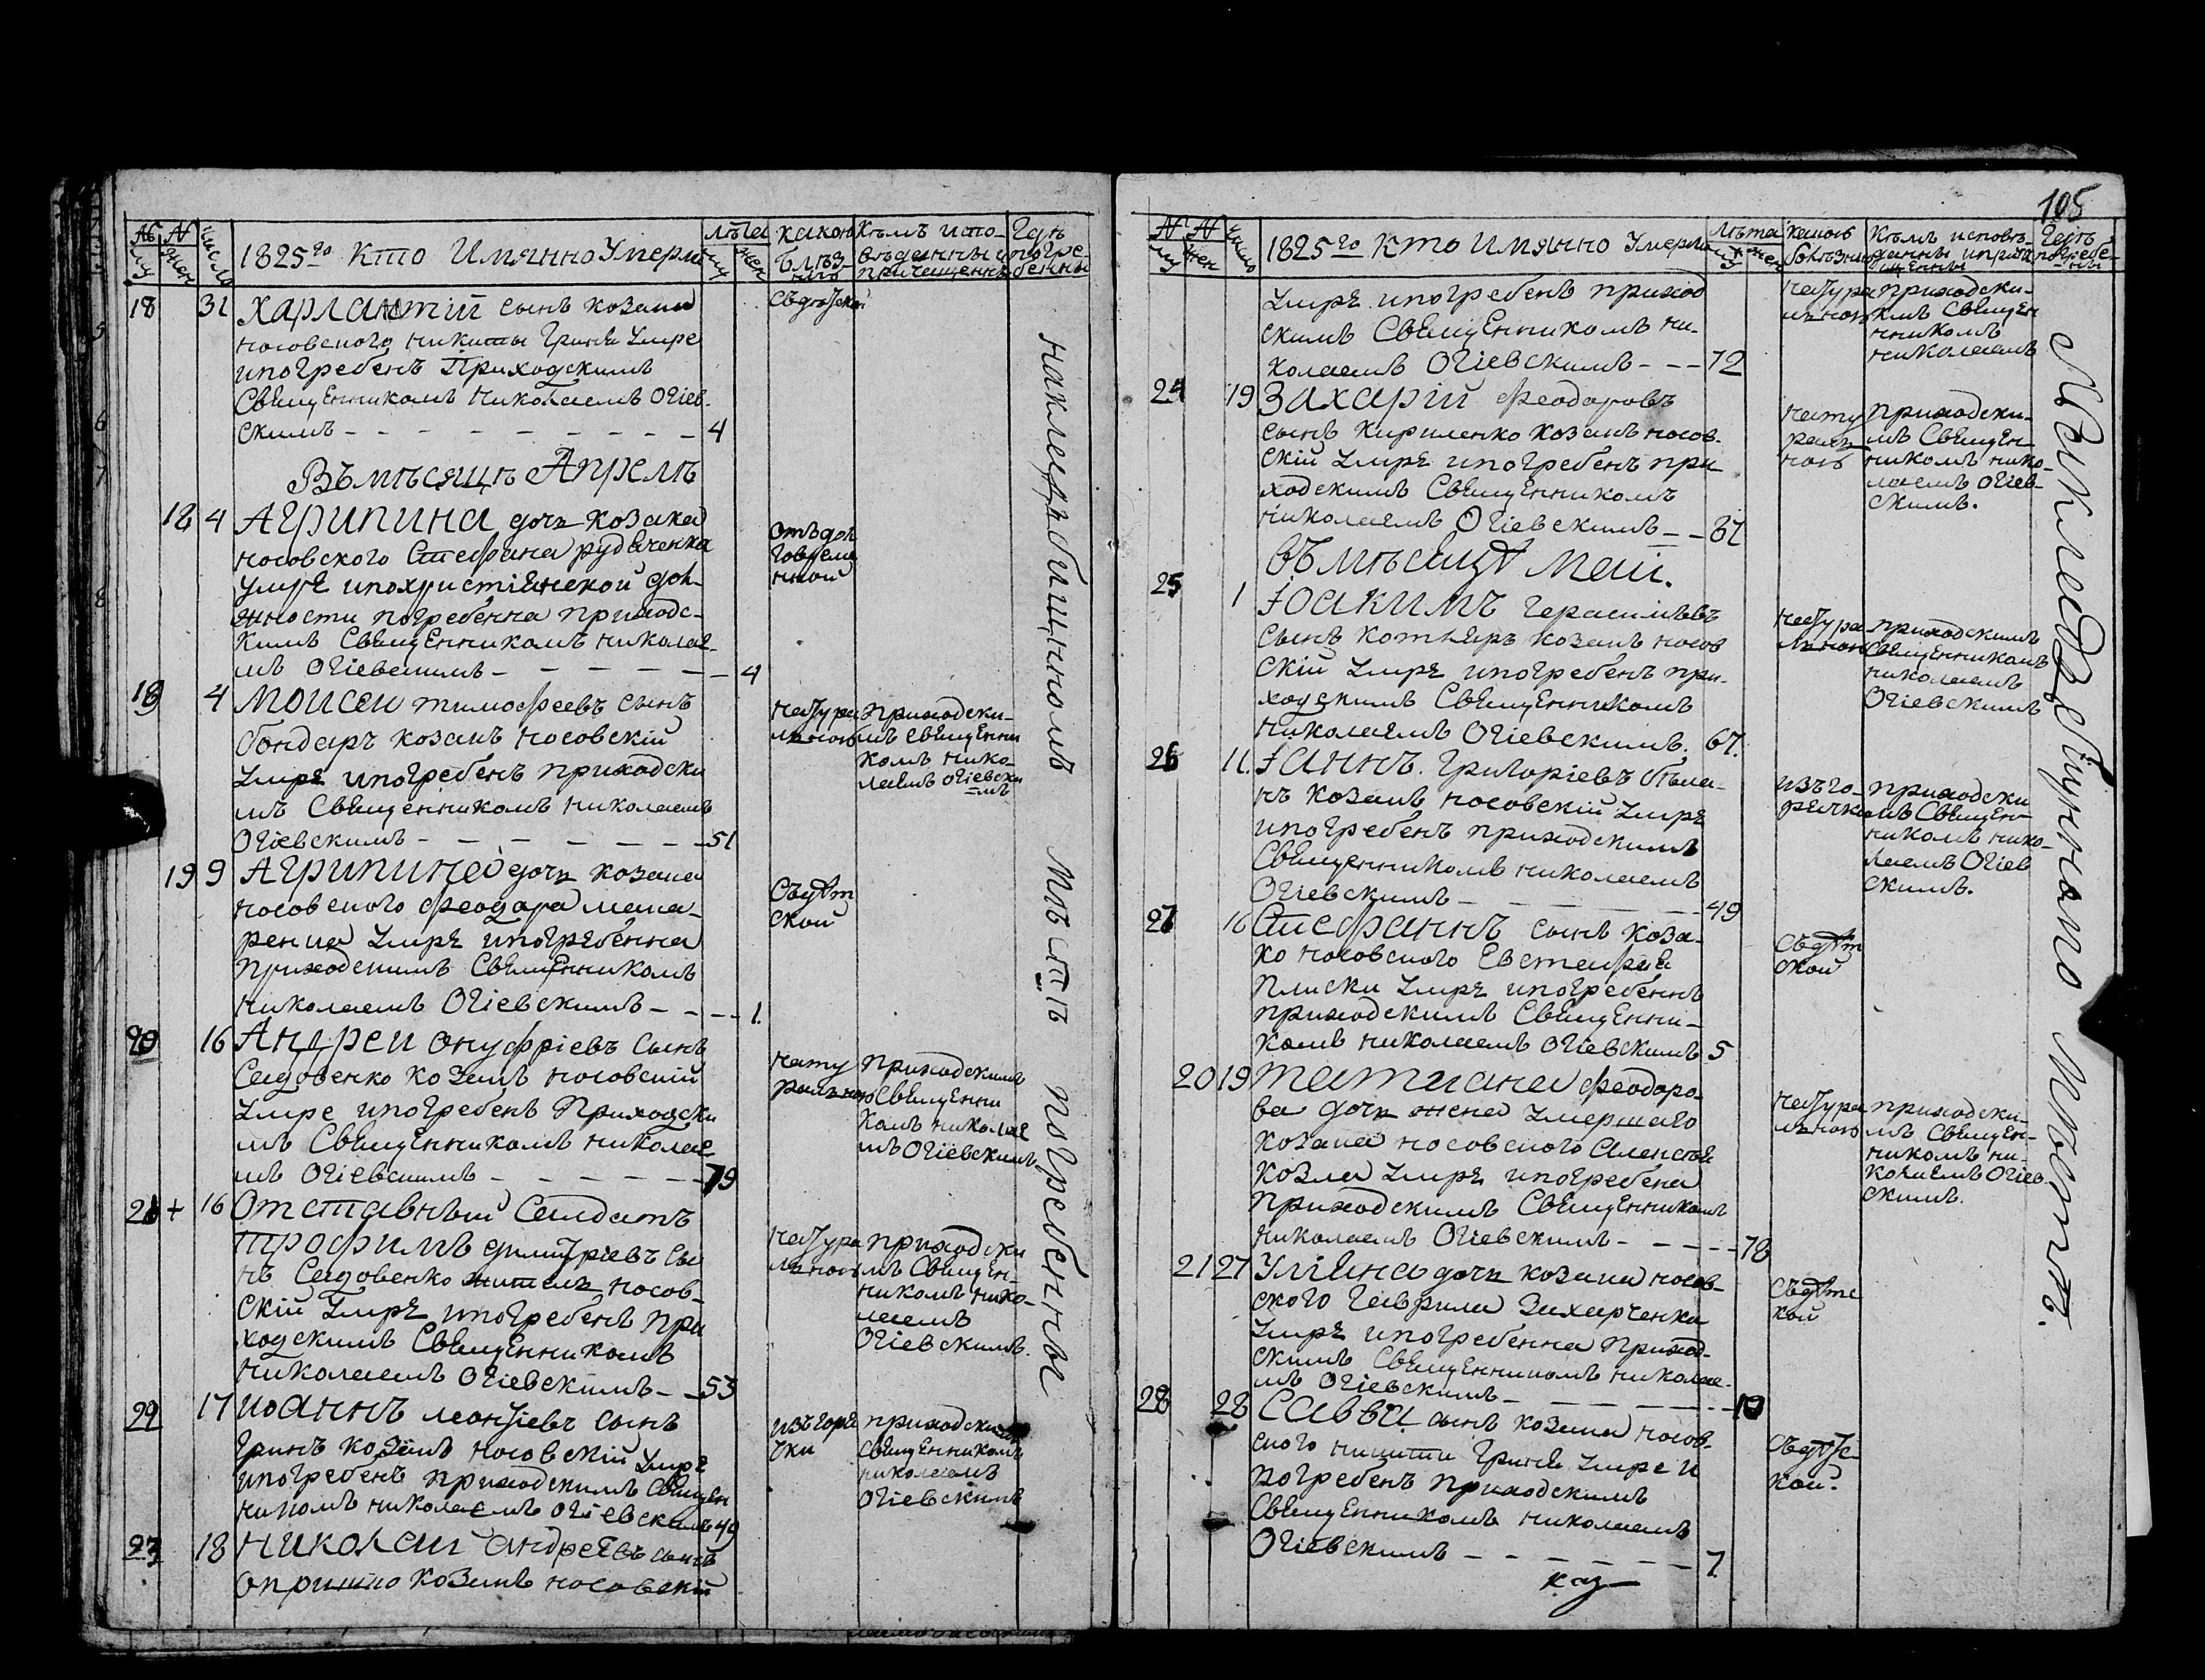 № му
№ жен
число
1825го Кто Имянно Умерли
лѣта
му
жен
какою
болѣз
нію
Кѣмъ испо-
вѣданны и
причащенны
Гдѣ
погре-
бенны
18
31
Харлампій сынъ козака
носовского никиты Гриня Умре
ипогребенъ Приходскимъ
Священникомъ Николаемъ Огіев-
скимъ
4
Въ мѣсяцѣ Апрелѣ
18
4
Агрипина дочь козака
носовского Стефана рудиченка
умре ипохристіянской дол-
жности погребенна приходс-
кимъ Священникомъ николае-
мъ Огіевскимъ
4
19
4
Моисеи тимофеевъ сынъ
бондаръ козакъ носовскій
Умре ипогребенъ приходски
мъ Священникомъ николаемъ
Огіевскимъ
51
натура
льною
Приходски-
мъ священни
комъ нико-
лаемъ огіевски
мъ
19
9
Агрипина дочь козака
носовского феодора
Умре ипогребенна
приходскимъ Священникомъ
николаемъ Огіевскимъ
1.
20
16
Андреи онуфріевъ сынъ
Садовенко козакъ носовскій
Умре ипогребенъ Приходски
мъ Священникомъ николае
мъ Огіевскимъ
79
нату
ральною
Приходскимъ
Священни
комъ николае
мъ Огіевскимъ
21
+
16
Отставный Салдатъ
трофимъ димитріевъ сы
нъ Садовенко житель носов-
скій Умре ипогребенъ при
ходскимъ Священникомъ
николаемъ Огіевскимъ
53
натура
льною
приходски
мъ Священ-
никомъ нико-
лаемъ
Огіевскимъ.
22
17
Иоаннъ леонтіевъ сынъ
Гринь козакъ носовскій Умре
ипогребенъ приходскимъ Священ
никомъ николаемъ огіевскимъ
49
изъ горя
чки
приходскимъ
Священникомъ
николаемъ
Огіевскимъ
23
18
Николай андреевъ сынъ
опришко козакъ носовскій
на кладбищномъ мѣстѣ погребенны
105
№ му
№ жен
число
1825го Кто Имянно Умерли
Лѣта
му
жен
какою
болѣзнію
Кѣмъ исповѣ-
данны и прича
щенны
Гдѣ
погребе-
нны
Умре ипогребенъ приход
скимъ Священникомъ ни-
колаемъ Огіевскимъ
72
натура
льною
приходски-
мъ Священ
никомъ
николаемъ
24
19
Захарій Феодоровъ
сынъ Кириленко козакъ носов-
скій Умре ипогребенъ при
ходскимъ Священникомъ
николаемъ Огіевскимъ
37
нату
раль
ною
приходски-
мъ Священ-
никомъ нико-
лаемъ Огіев-
скимъ.
въ мѣсяцѣ Маіи.
25
1
Іоакимъ Герасимовъ
сынъ котляръ козакъ носов
скій Умре ипогребенъ при-
ходскимъ Священникомъ
николаемъ Огіевскимъ.
67.
натура
льною
приходскимъ
Священникомъ
николаемъ
Огіевскимъ
26
11.
Іаннъ. Григоріевъ
козакъ носовскій Умре
ипогребенъ приходскимъ
Священникомъ николаемъ
Огіевскимъ
49
изъ го-
рячки
приходски
мъ Священ
никомъ нико-
лаемъ Огіев
скимъ.
27
16
Стефаннъ сынъ коза-
ка носовского Евстафія
Плиски Умре ипогребеннъ
приходскимъ Священни-
комъ николаемъ Огіевскимъ
5
20
19
Татиана феодоро-
ва дочь жена умершаго
козака носовского Алексія
Козла Умре ипогребена
приходскимъ Священникомъ
николаемъ Огіевскимъ
78
натура
льною
приходски-
мъ Священ-
никомъ ни-
колаемъ Огіев
скимъ.
21
27
Уліяна дочь козака носов-
ского Гаврила Захарченка
Умре ипогребенна приход-
скимъ Священникомъ николае-
мъ Огіевскимъ
28
28
Савва сынъ козака носов-
ского никиты Гриня Умре и
погребенъ приходскимъ
Священникомъ николаемъ
Огіевскимъ
7.
На кладбищномъ мѣстѣ.